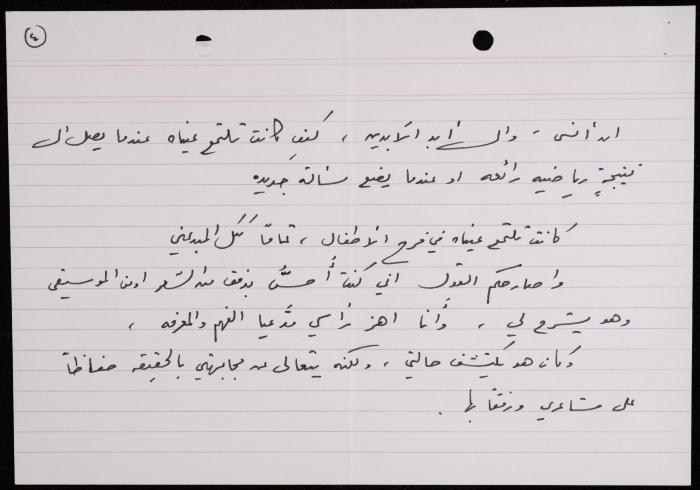 ٤
لن أنسى، وإلى أبد الآبدين، كيف كانت تلتمع عيناه عندما يصل الى
نتيجةٍ رياضيه رائعه او عندما يضع مسألة جديده
كانت تلتمع عيناه في فرح الاطفال، تماماً ككل المبدعين
واصارحكم القول اني كنت أُحسُّ بدفق من الشعر او من الموسيقى
وهو يشرح لي، وأنا اهز رأسي مدَّعيا الفهم والمعرفه،
وكان هو يكتشف حالتي، ولكنه يتعالى عن مجابهتي بالحقيقه حفاظاً
على مشاعري ورفقاً بها.